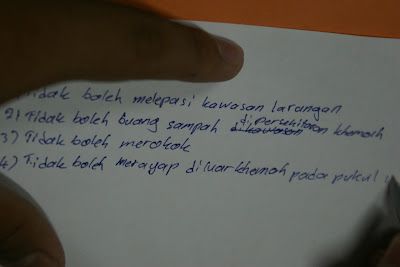 Tidak boleh melepasi kawasan larangan
2) Tidak boleh buang sampah dipersekitaran khemah
3) Tidak boleh merokok
4) Tidak boleh merayap diluar khemah pada pukul